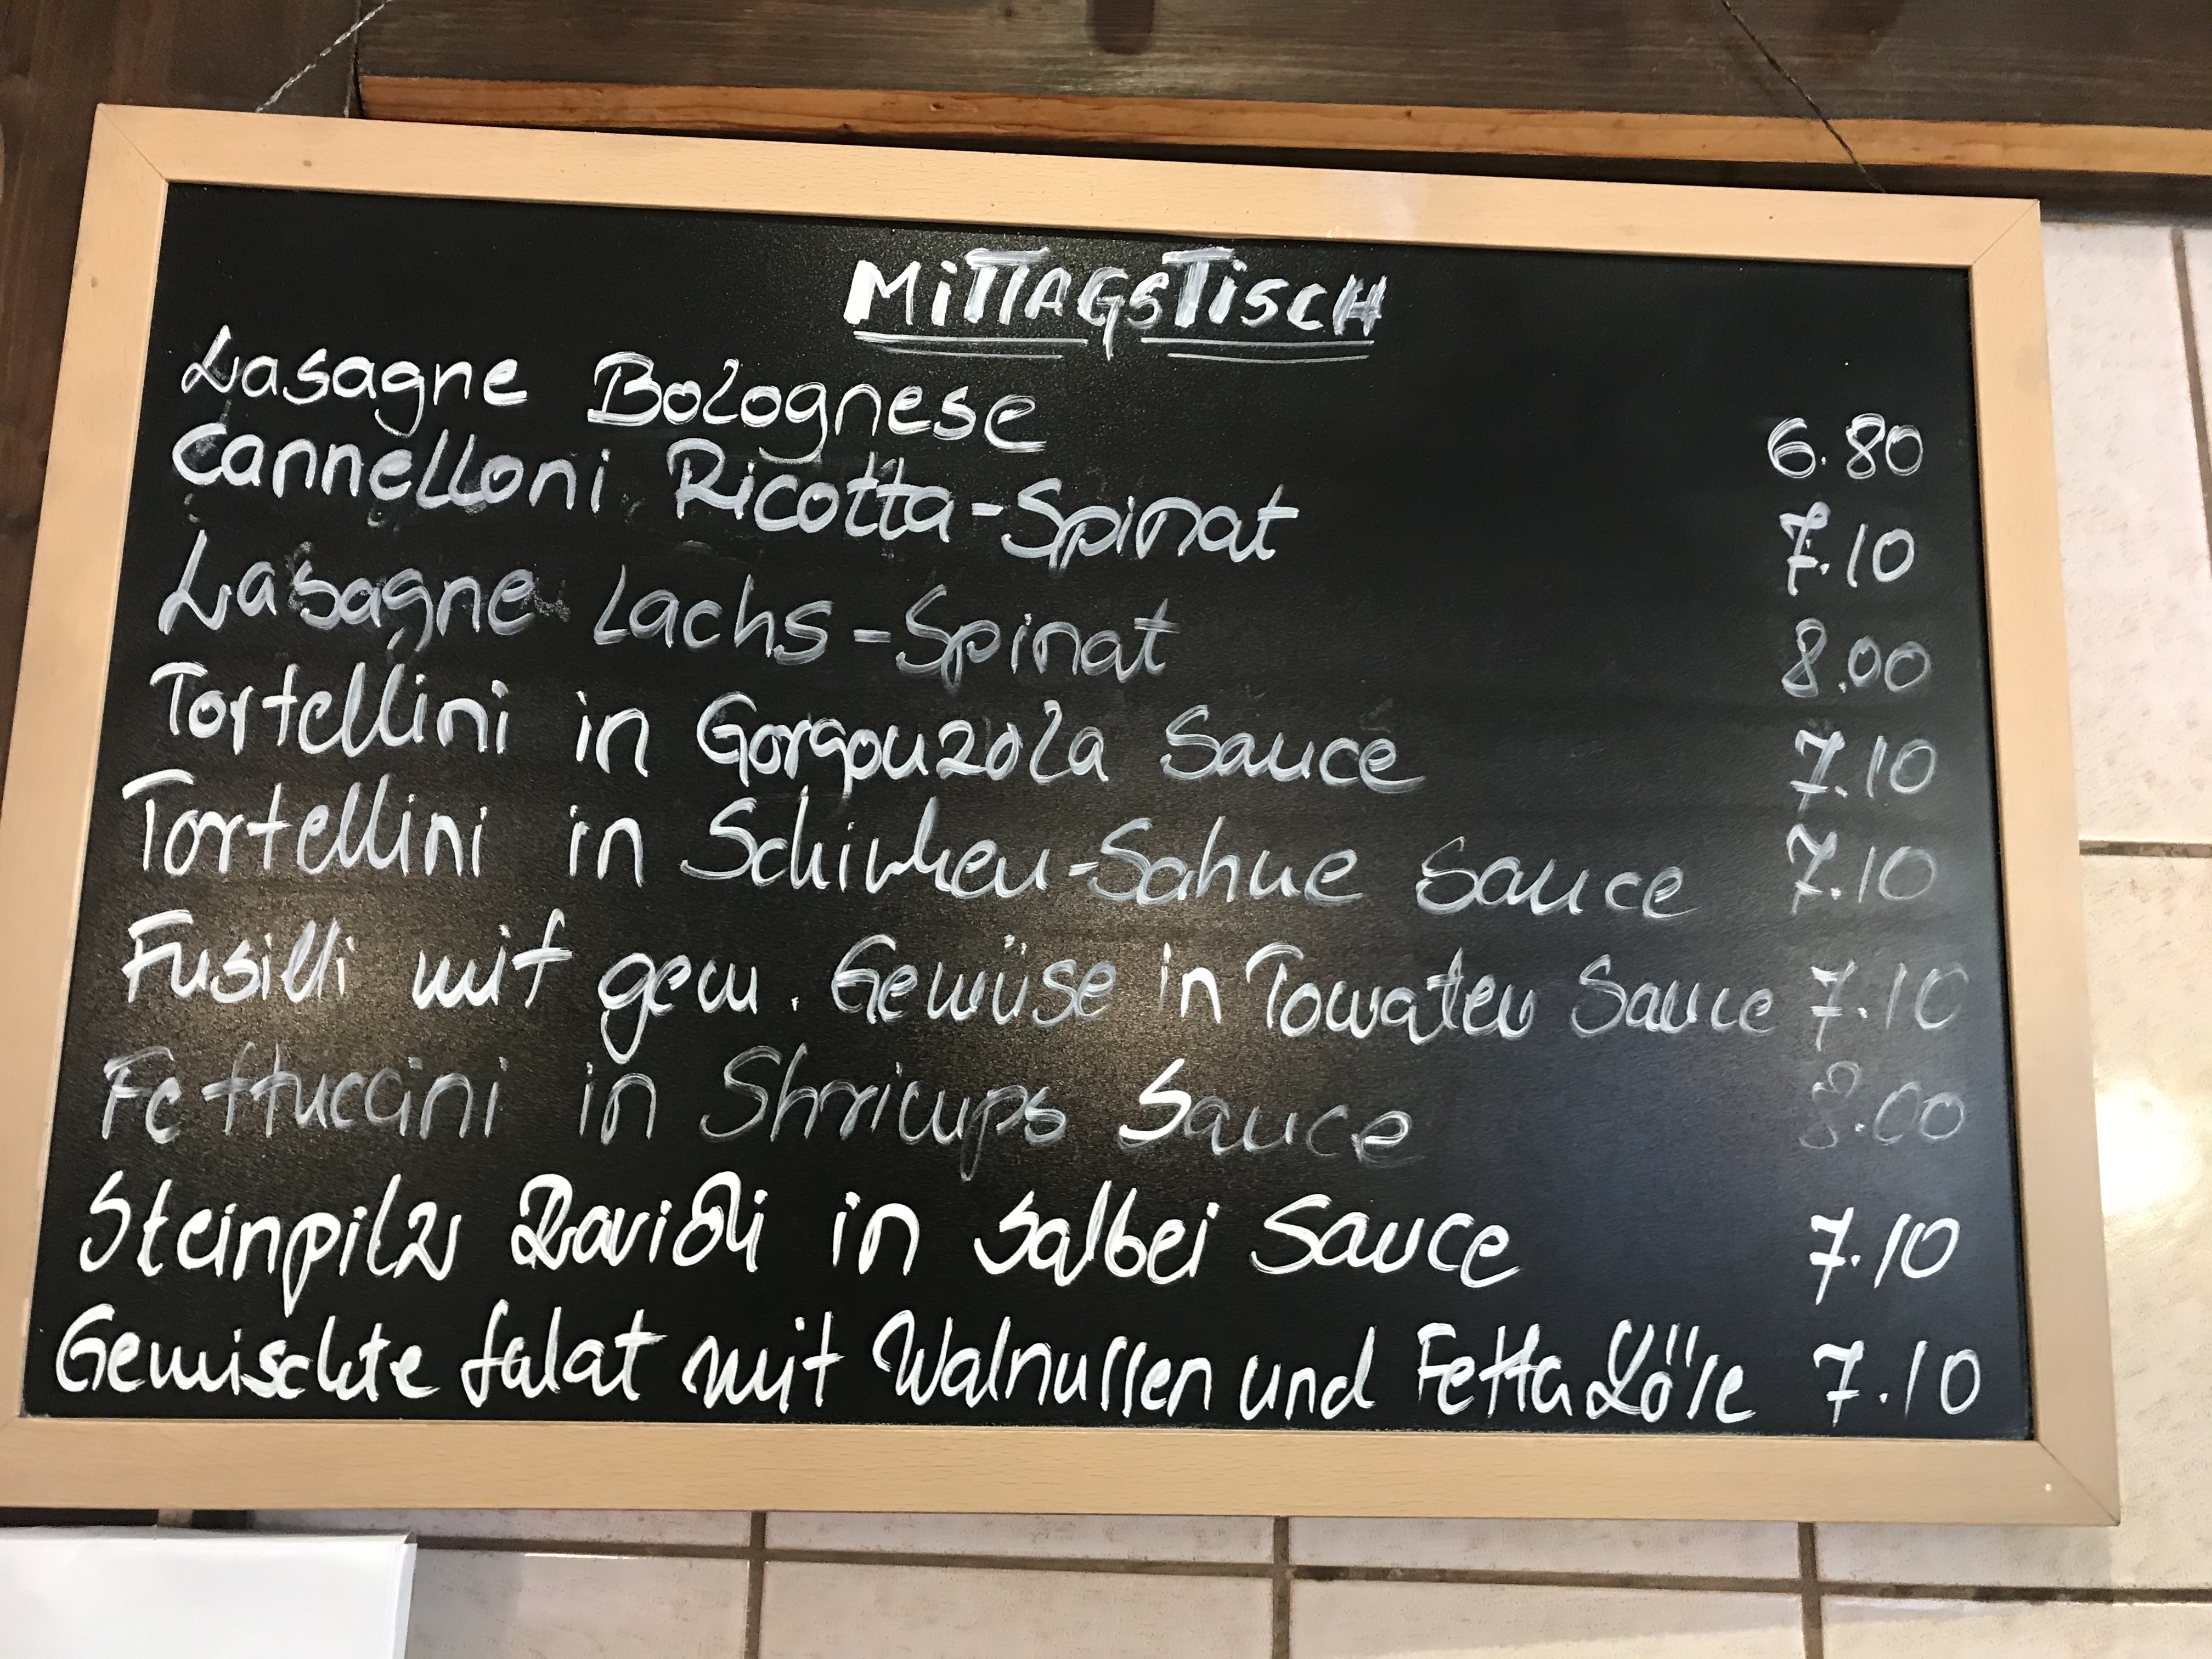 MiTTAGSTiSCH
Lasagne Bolognese 6.80
Cannelloni Ricotta-Spinat 7.10
Lasagne Lachs-Spinat 8.00
Tortellini in Gorgonzola Sauce 7.10
Tortellini in Schinken-Sahne Sauce 7.10
Fusilli mit gem. Gemüse in Tomaten Sauce 7.10
Fettuccini in Shrimps Sauce 8.00
Steinpilz Ravioli in Salbei Sauce 7.10
Gemischte Salat mit Walnussen und Fetta Käse 7.10